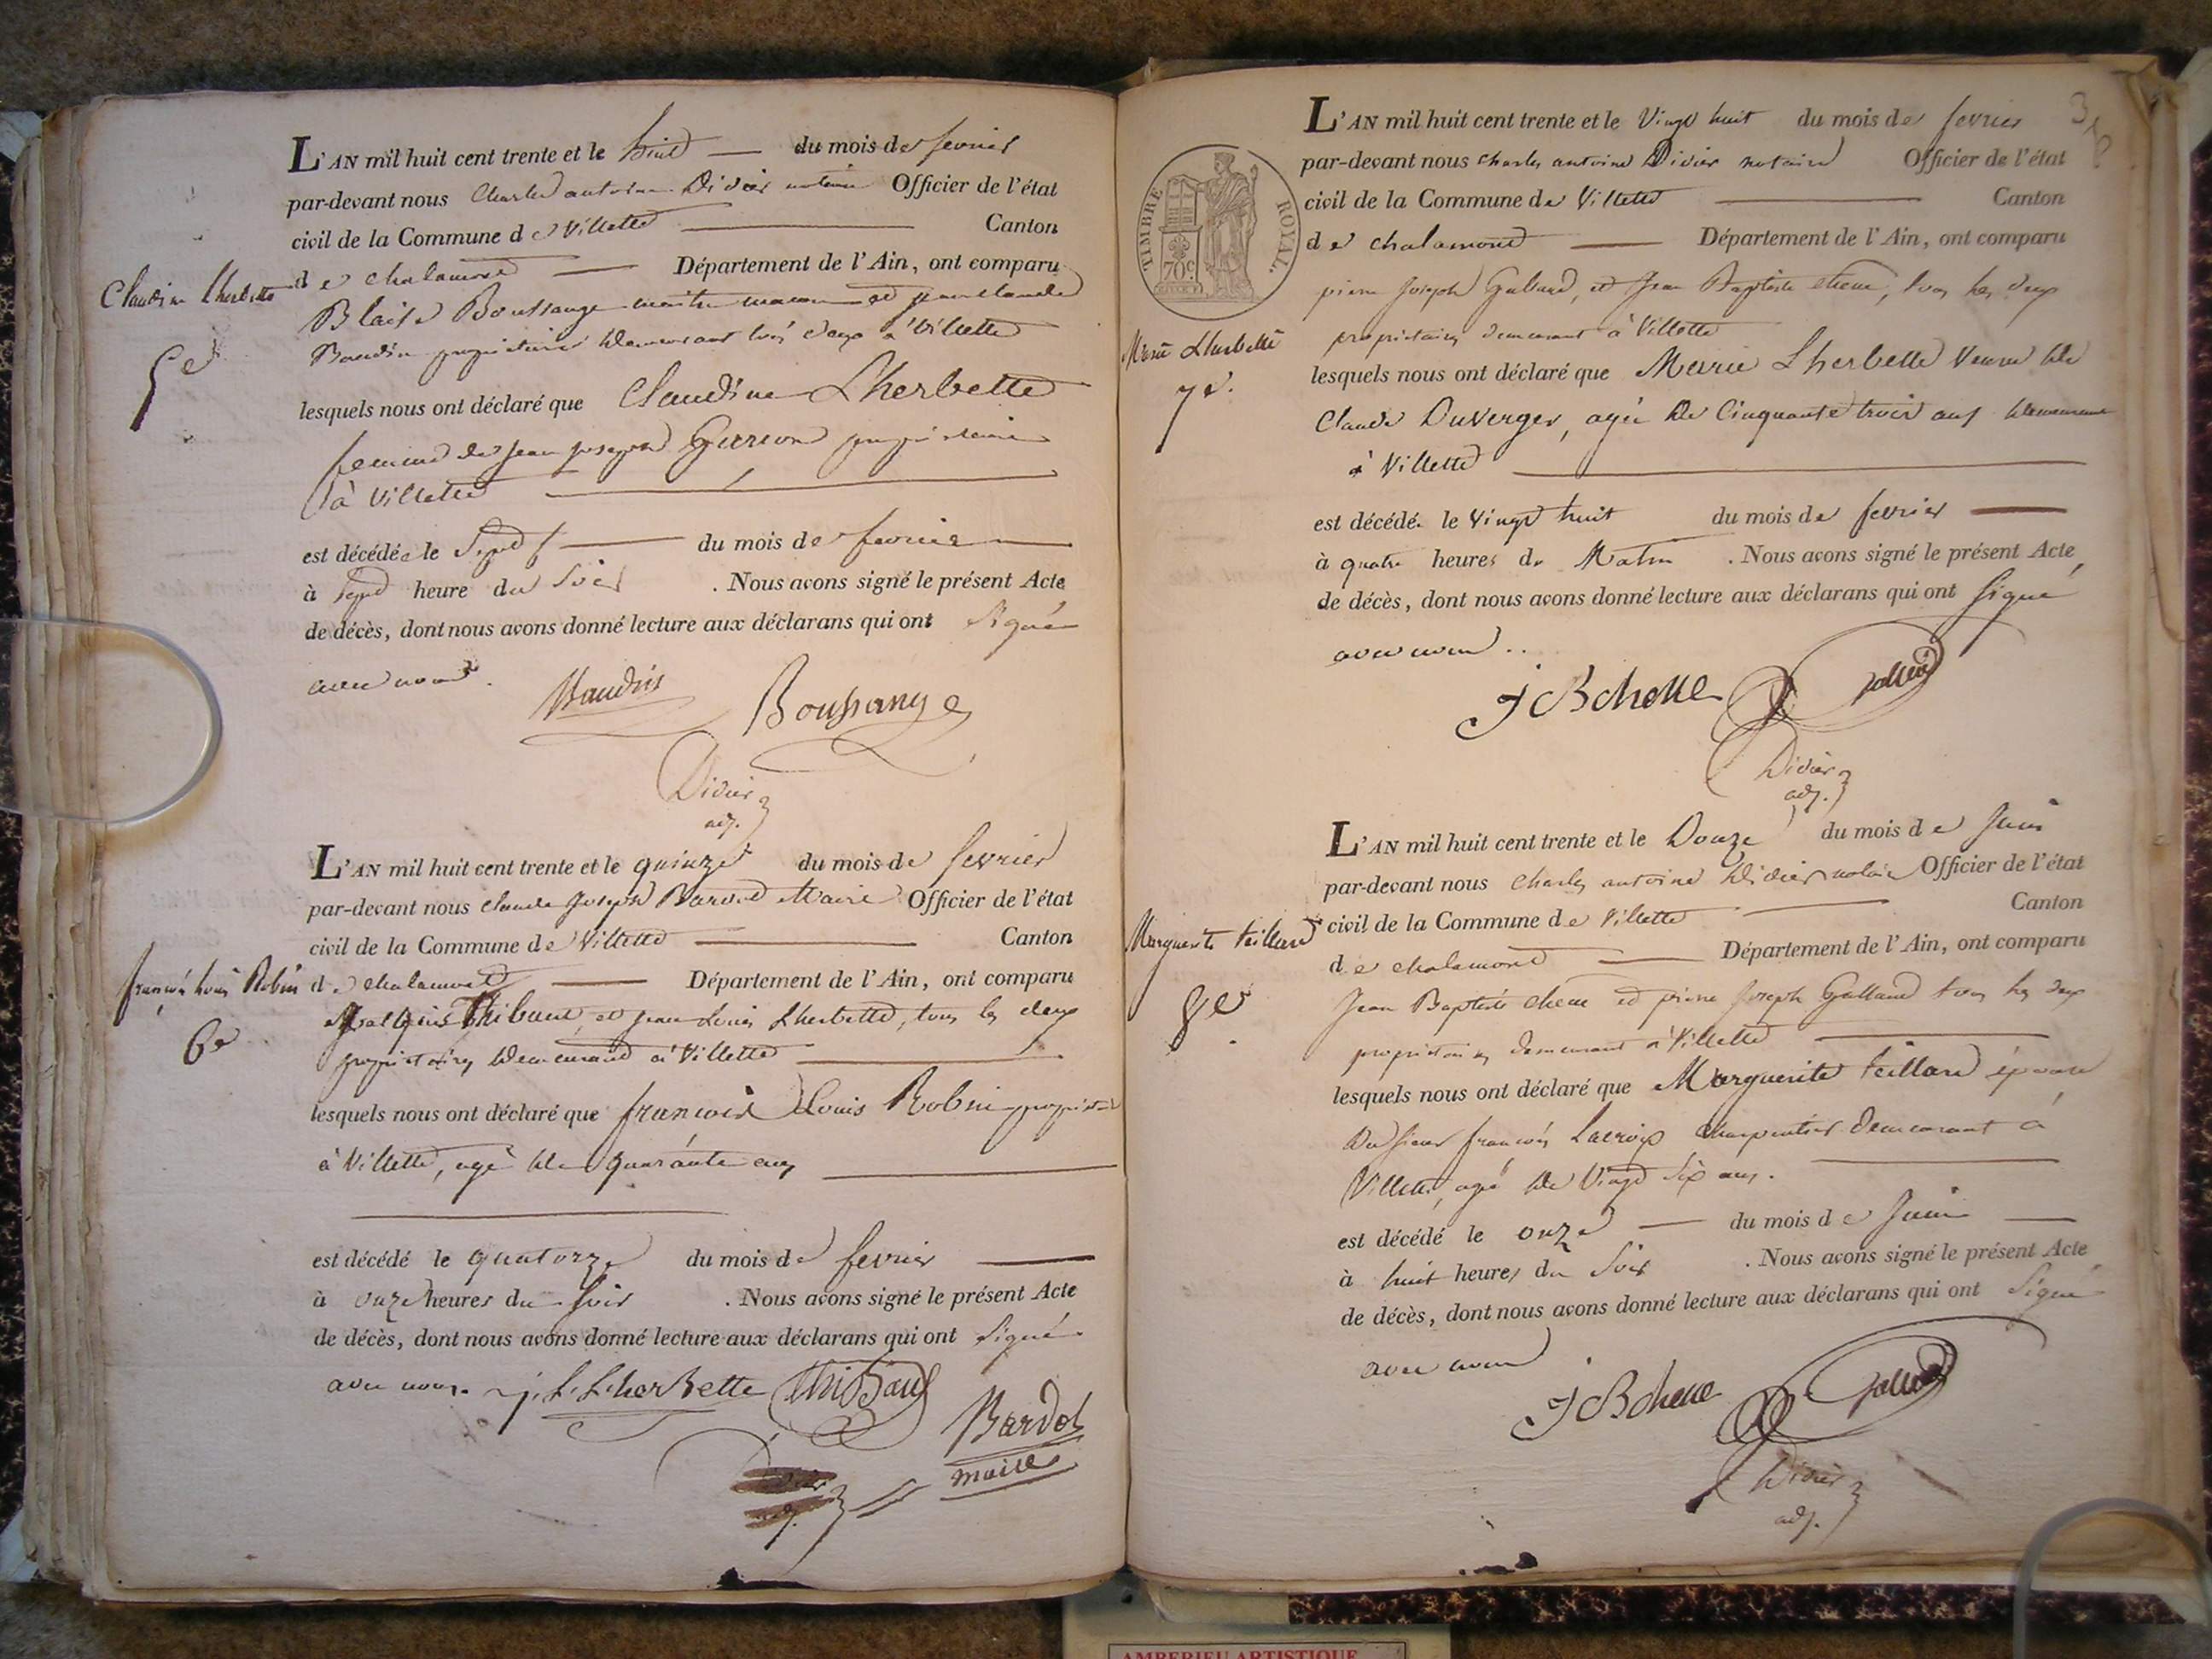 L'AN mil huit cent trente et le huit du mois de fevrier
par-devant nous Charles antoine Didier notaire Officier de l'état
civil de la Commune de Villette Canton
de chalamont Département de l'Ain, ont comparu
Claudine Lherbette
5e
Blaise Boussange maitre macon et jean claude
Baudin proprietaires demeurant tous deux a Villette
lesquels nous ont déclaré que Claudine Lherbette
femme de jean joseph proprietaire
à Villette
est décédée le Sept du mois de fevrier
à Sept heure du Soir . Nous avons signé le présent Acte
de décès, dont nous avons donné lecture aux déclarans qui ont Signé
avec nous.
Baudin Boussange
Didier
adj.
L'AN mil huit cent trente et le quinze du mois de fevrier
par-devant nous claude Joseph Bardod Maire Officier de l'état
civil de la Commune de Villette Canton
de chalamont Département de l'Ain, ont comparu
françois louis Robin
6e
Thibaud, et jean Louis Lherbette, tous les deux
proprietaires demeurand à Villette
lesquels nous ont déclaré que francois Louis Robin
à Villette, agé de quarante ans
est décédé le quatorze du mois de fevrier
à onze heures du Soir . Nous avons signé le présent Acte
de décès, dont nous avons donné lecture aux déclarans qui ont Signé
avec nous. j. L. Lherbette thibaud
Bardod
maire
TIMBRE ROYAL.
70c
L'AN mil huit cent trente et le Vingt huit du mois de fevrier
par-devant nous Charles antoine Didier notaire Officier de l'état
civil de la Commune de Villette Canton
de chalamont Département de l'Ain, ont comparu
pierre Joseph Galland, et Jean Baptiste chene, tous les deux
proprietaires demeurant à Villette
Marie Lherbette
7e.
lesquels nous ont déclaré que Marie Lherbette Veuve de
Claude Duverger, agée de Cinquante trois ans demeurant
à Villette
est décédé le Vingt huit du mois de fevrier
à quatre heures du Matin . Nous avons signé le présent Acte
de décès, dont nous avons donné lecture aux déclarans qui ont Signé
avec nous..
J B chene Galland
Didier
adj.
L'AN mil huit cent trente et le Douze du mois de Juin
par-devant nous Charles antoine Didier notaire Officier de l'état
civil de la Commune de Villette Canton
de chalamont Département de l'Ain, ont comparu
Marguerite teillard
8e
Jean Baptiste chene et pierre Joseph Galland tous les deux
proprietaires demeurant à Villette
lesquels nous ont déclaré que Marguerite teillard épouse
Du Sieur françois Lacroix charpentier demeurant à
Villette, agé de Vingt Six ans.
est décédé le onze du mois de Juin
à huit heures du Soir . Nous avons signé le présent Acte
de décès, dont nous avons donné lecture aux déclarans qui ont Signé
avec nous
J B chene Galland
Didier
adj.
AMBERIEU ARTISTIQUE